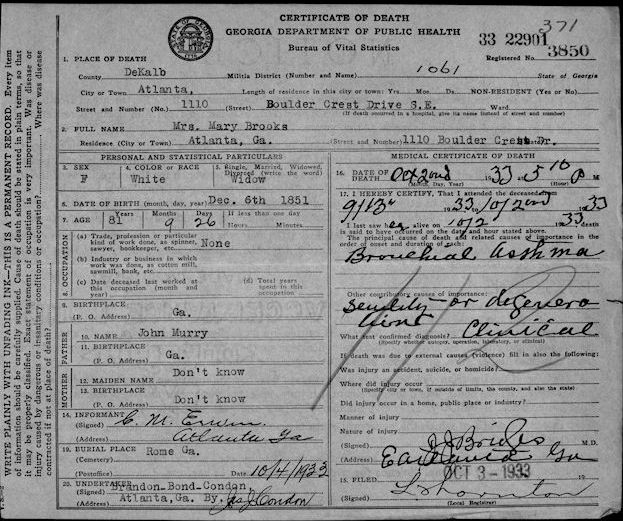 CERTIFICATE OF DEATH
GEORGIA DEPARTMENT OF PUBLIC HEALTH
Bureau of Vital Statistics
371
33 22901
Registered No. 3850
1. PLACE OF DEATH
County DeKalb Militia District (Number and Name) 1061 State of Georgia
City or Town Atlanta, Length of residence in this city or town: Yrs. Mos. Ds. NON-RESIDENT (Yes or No)
Street and Number (No.) 1110 (Street) Boulder Crest Drive S.E. Ward
(If death occurred in a hospital, give its name instead of street and number)
2. FULL NAME Mrs. Mary Brooks
Residence (City or Town) Atlanta, Ga. (Street and Number) 1110 Boulder Crest Dr.
PERSONAL AND STATISTICAL PARTICULARS
3. SEX F
4. COLOR OR RACE White
5. Single, Married, Widowed, Divorced (write the word) Widow
6. DATE OF BIRTH (month, day, year) Dec. 6th 1851
7. AGE Years 81 Months 9 Days 26 If less than 1 day
Hours Minutes
8. OCCUPATION
(a) Trade, profession or particular kind of work done, as spinner, sawyer, bookkeeper, etc. None
(b) Industry or business in which work was done, as cotton mill, sawmill, bank, etc.
(c) Date deceased last worked at this occupation (month and year)
(d) Total years spent in this occupation
9. BIRTHPLACE
(P. O. Address) Ga.
FATHER
10. NAME John Murry
11. BIRTHPLACE
(P. O. Address) Ga.
MOTHER
12. MAIDEN NAME Don't know
13. BIRTHPLACE
(P. O. Address) Don't know
14. INFORMANT
(Signed) C. M. Erwin
(Address) Atlanta Ga
19. BURIAL PLACE
(Cemetery) Rome Ga.
(Postoffice) Date 10/4/1933
20. UNDERTAKER
(Signed) Brandon-Bond-Condon,
(Address) Atlanta, Ga. By. Jas J. Condon
MEDICAL CERTIFICATE OF DEATH
16. DATE OF DEATH Oct 2nd 1933 5 10 P M
(Month, Day, Year)
17. I HEREBY CERTIFY, That I attended the deceased from
9/13 1933 10/2nd 1933
I last saw her alive on 10/2 1933, death
is said to have occurred on the date and hour stated above.
The principal cause of death and related causes of importance in the
order of onset and duration of each:
Bronchial asthma
Other contributory causes of importance:
Senility or degenera
tion
What test confirmed diagnosis? Clinical
(Specify whether autopsy, operation, laboratory, or clinical)
If death was due to external causes (violence) fill in also the following:
Was injury an accident, suicide, or homicide?
Where did injury occur
(Specify city or town, if outside of limits, the county, and also the state)
Did injury occur in a home, public place or industry?
Manner of injury
Nature of injury
(Signed) J J Bridges M.D.
(Address) Ga
15. FILED OCT 3 - 1933 19
(Signed) L. Thornton
(Local Registrar)
WRITE PLAINLY WITH UNFADING INK—THIS IS A PERMANENT RECORD. Every item
of information should be carefully supplied. Cause of death should be stated in plain terms, so that
it may be properly classified. Exact statement of occupation is very important. Was disease or
injury caused by dangerous or insanitary conditions or occupation? Where was disease
contracted if not at place of death?